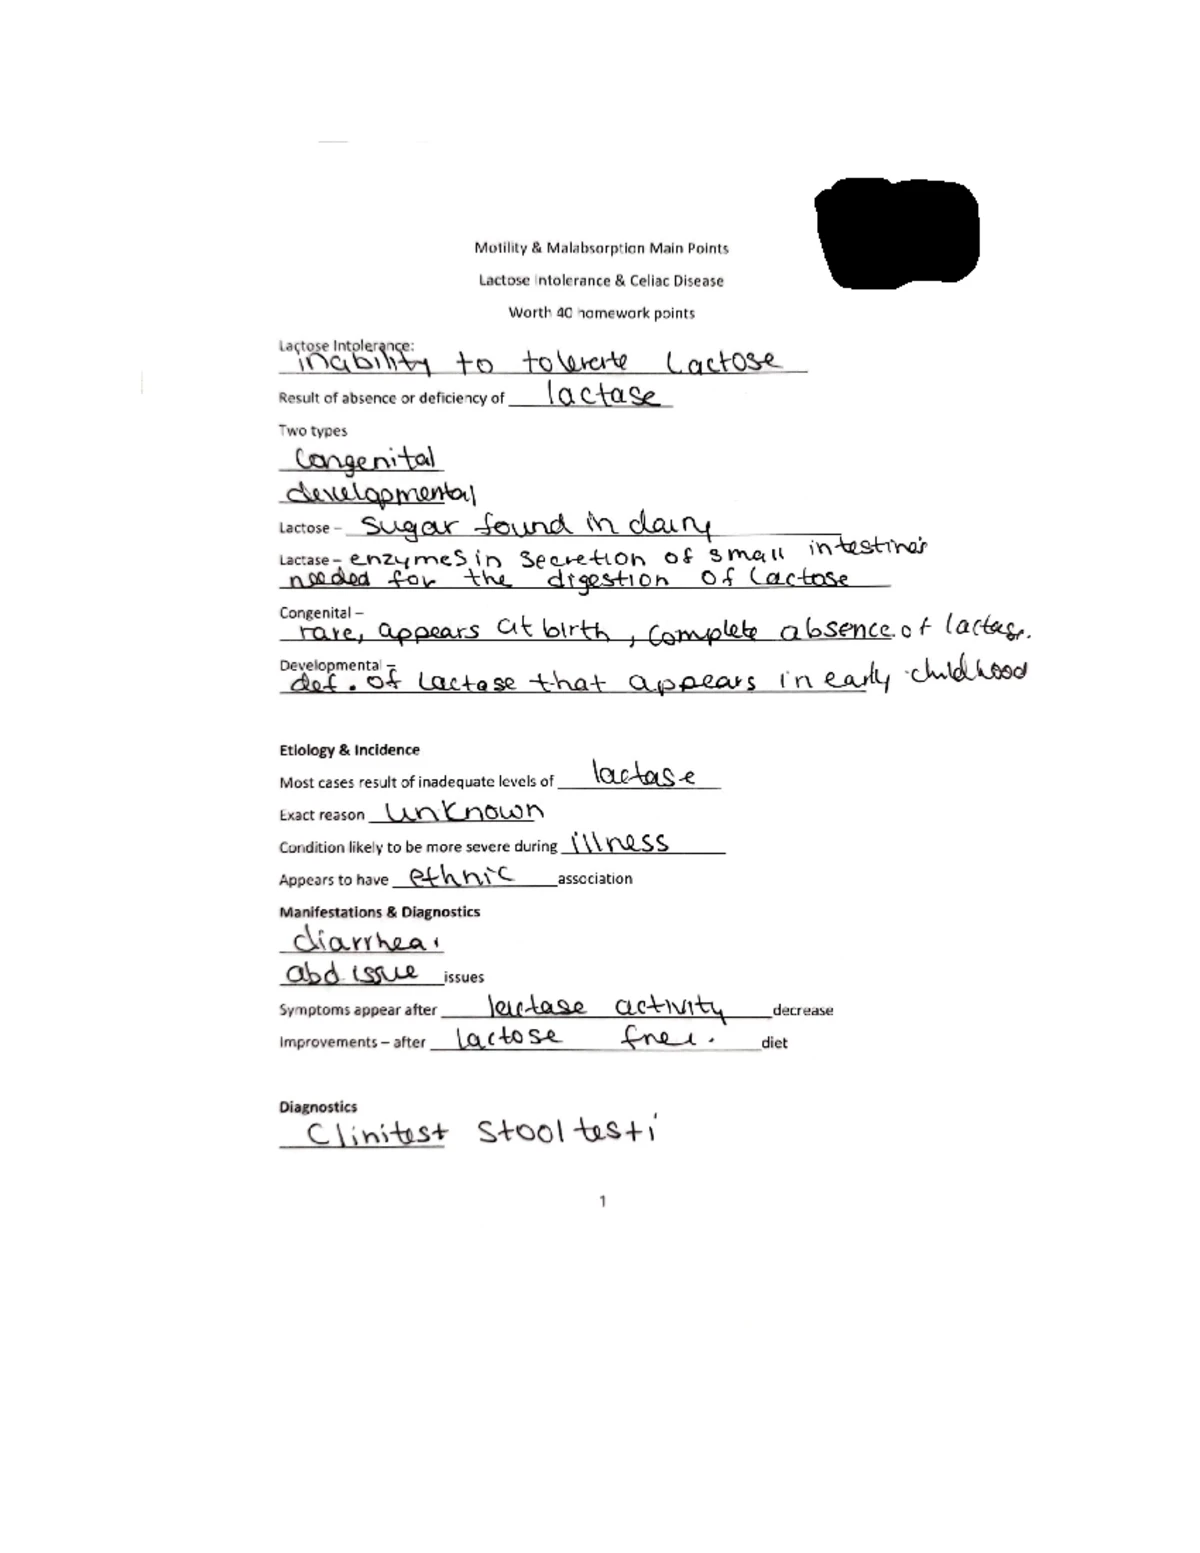 Motility & Malabsorption Main Points
Lactose Intolerance & Celiac Disease
Worth 40 homework points
Lactose Intolerance:
inability to tolerate Lactose
Result of absence or deficiency of lactase
Two types
Congenital
developmental
Lactose – sugar found in dairy
Lactase – enzymes in secretion of small intestines
needed for the digestion of lactose
Congenital –
rare, appears at birth, complete absence of lactase.
Developmental –
def. of lactase that appears in early childhood
Etiology & Incidence
Most cases result of inadequate levels of lactase
Exact reason unknown
Condition likely to be more severe during illness
Appears to have ethnic association
Manifestations & Diagnostics
diarrhea
abd issue issues
Symptoms appear after lactase activity decrease
Improvements – after lactose free. diet
Diagnostics
Clinitest stool test
1